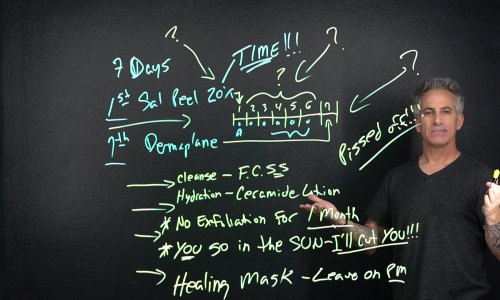 ? TIME!!! ? ?
7 Days
1st Sal Peel 20% 1 2 3 4 5 6 7
7th Dermaplane
Pissed off!!!
Cleanse - F.C. SS
Hydration - Ceramide Lotion
* No Exfiliation for 1 Month
* You go in the SUN - I'll cut You!!!
Healing Mask - Leave on pm